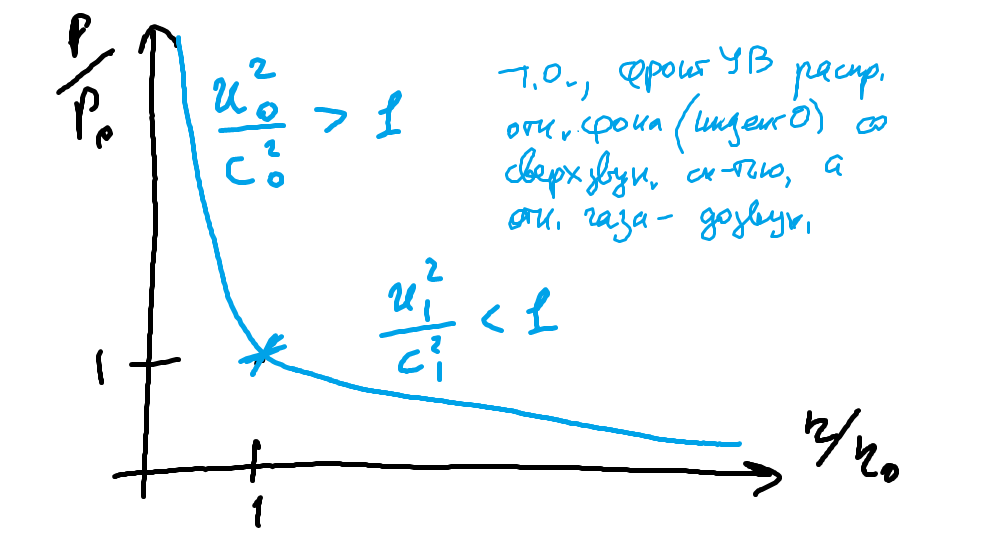 P/P₀
u₀²/c₀² > 1
т.о., фронт УВ распр.
отн. фона (индекс 0) со
сверхзвук. ск-тью, а
отн. газа - дозвук.
u₁²/c₁² < 1
1
1
r/r₀